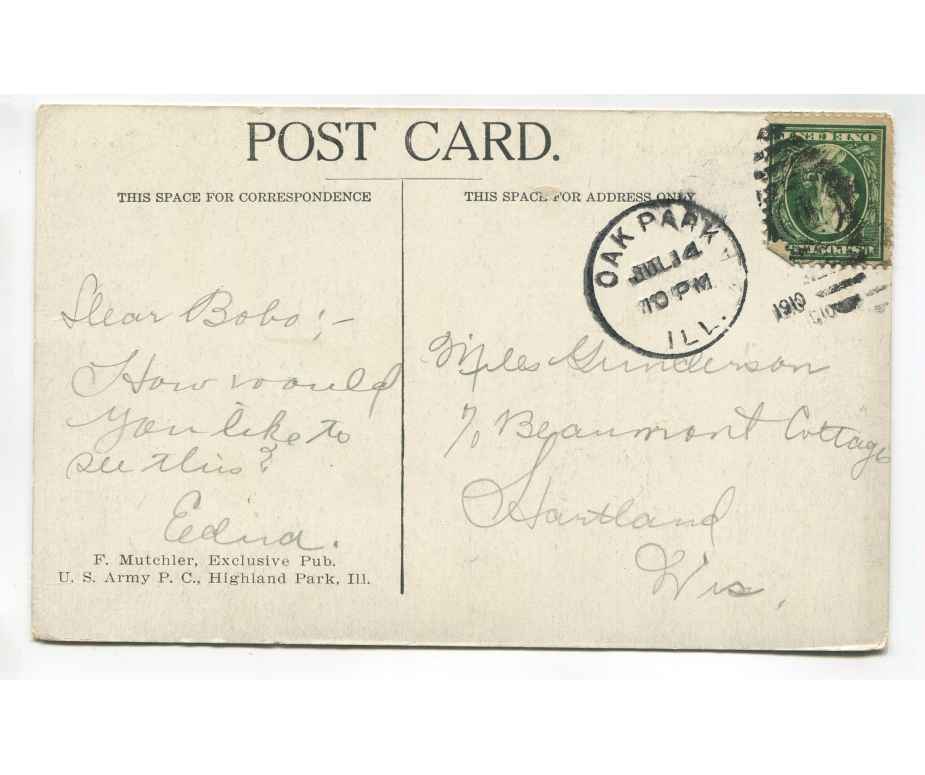 POST CARD.
THIS SPACE FOR CORRESPONDENCE
THIS SPACE FOR ADDRESS ONLY
OAK PARK
JUL 14
10 PM
ILL.
1910
Dear Bobo:-
How would
you like to
see this?
Edna.
F. Mutchler, Exclusive Pub.
U. S. Army P. C., Highland Park, Ill.
Myles Gunderson
℅ Beaumont Cottage
Hartland
Wis.
ONE CENT